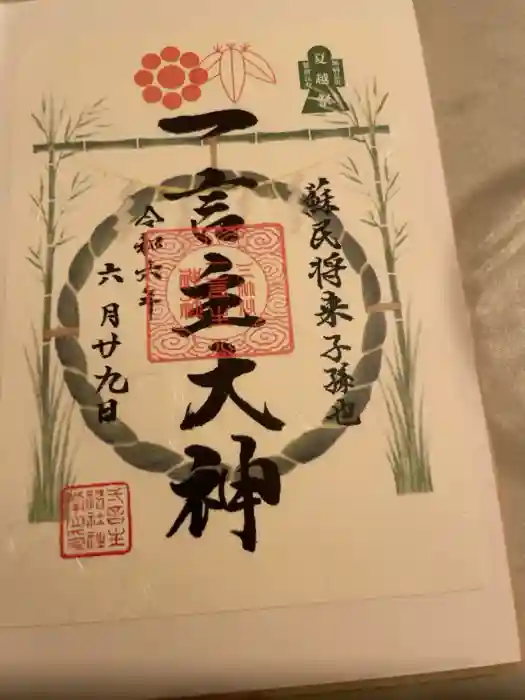 夏越祭
蘇民将来子孫也
一言主大神
令和六年
六月廿九日